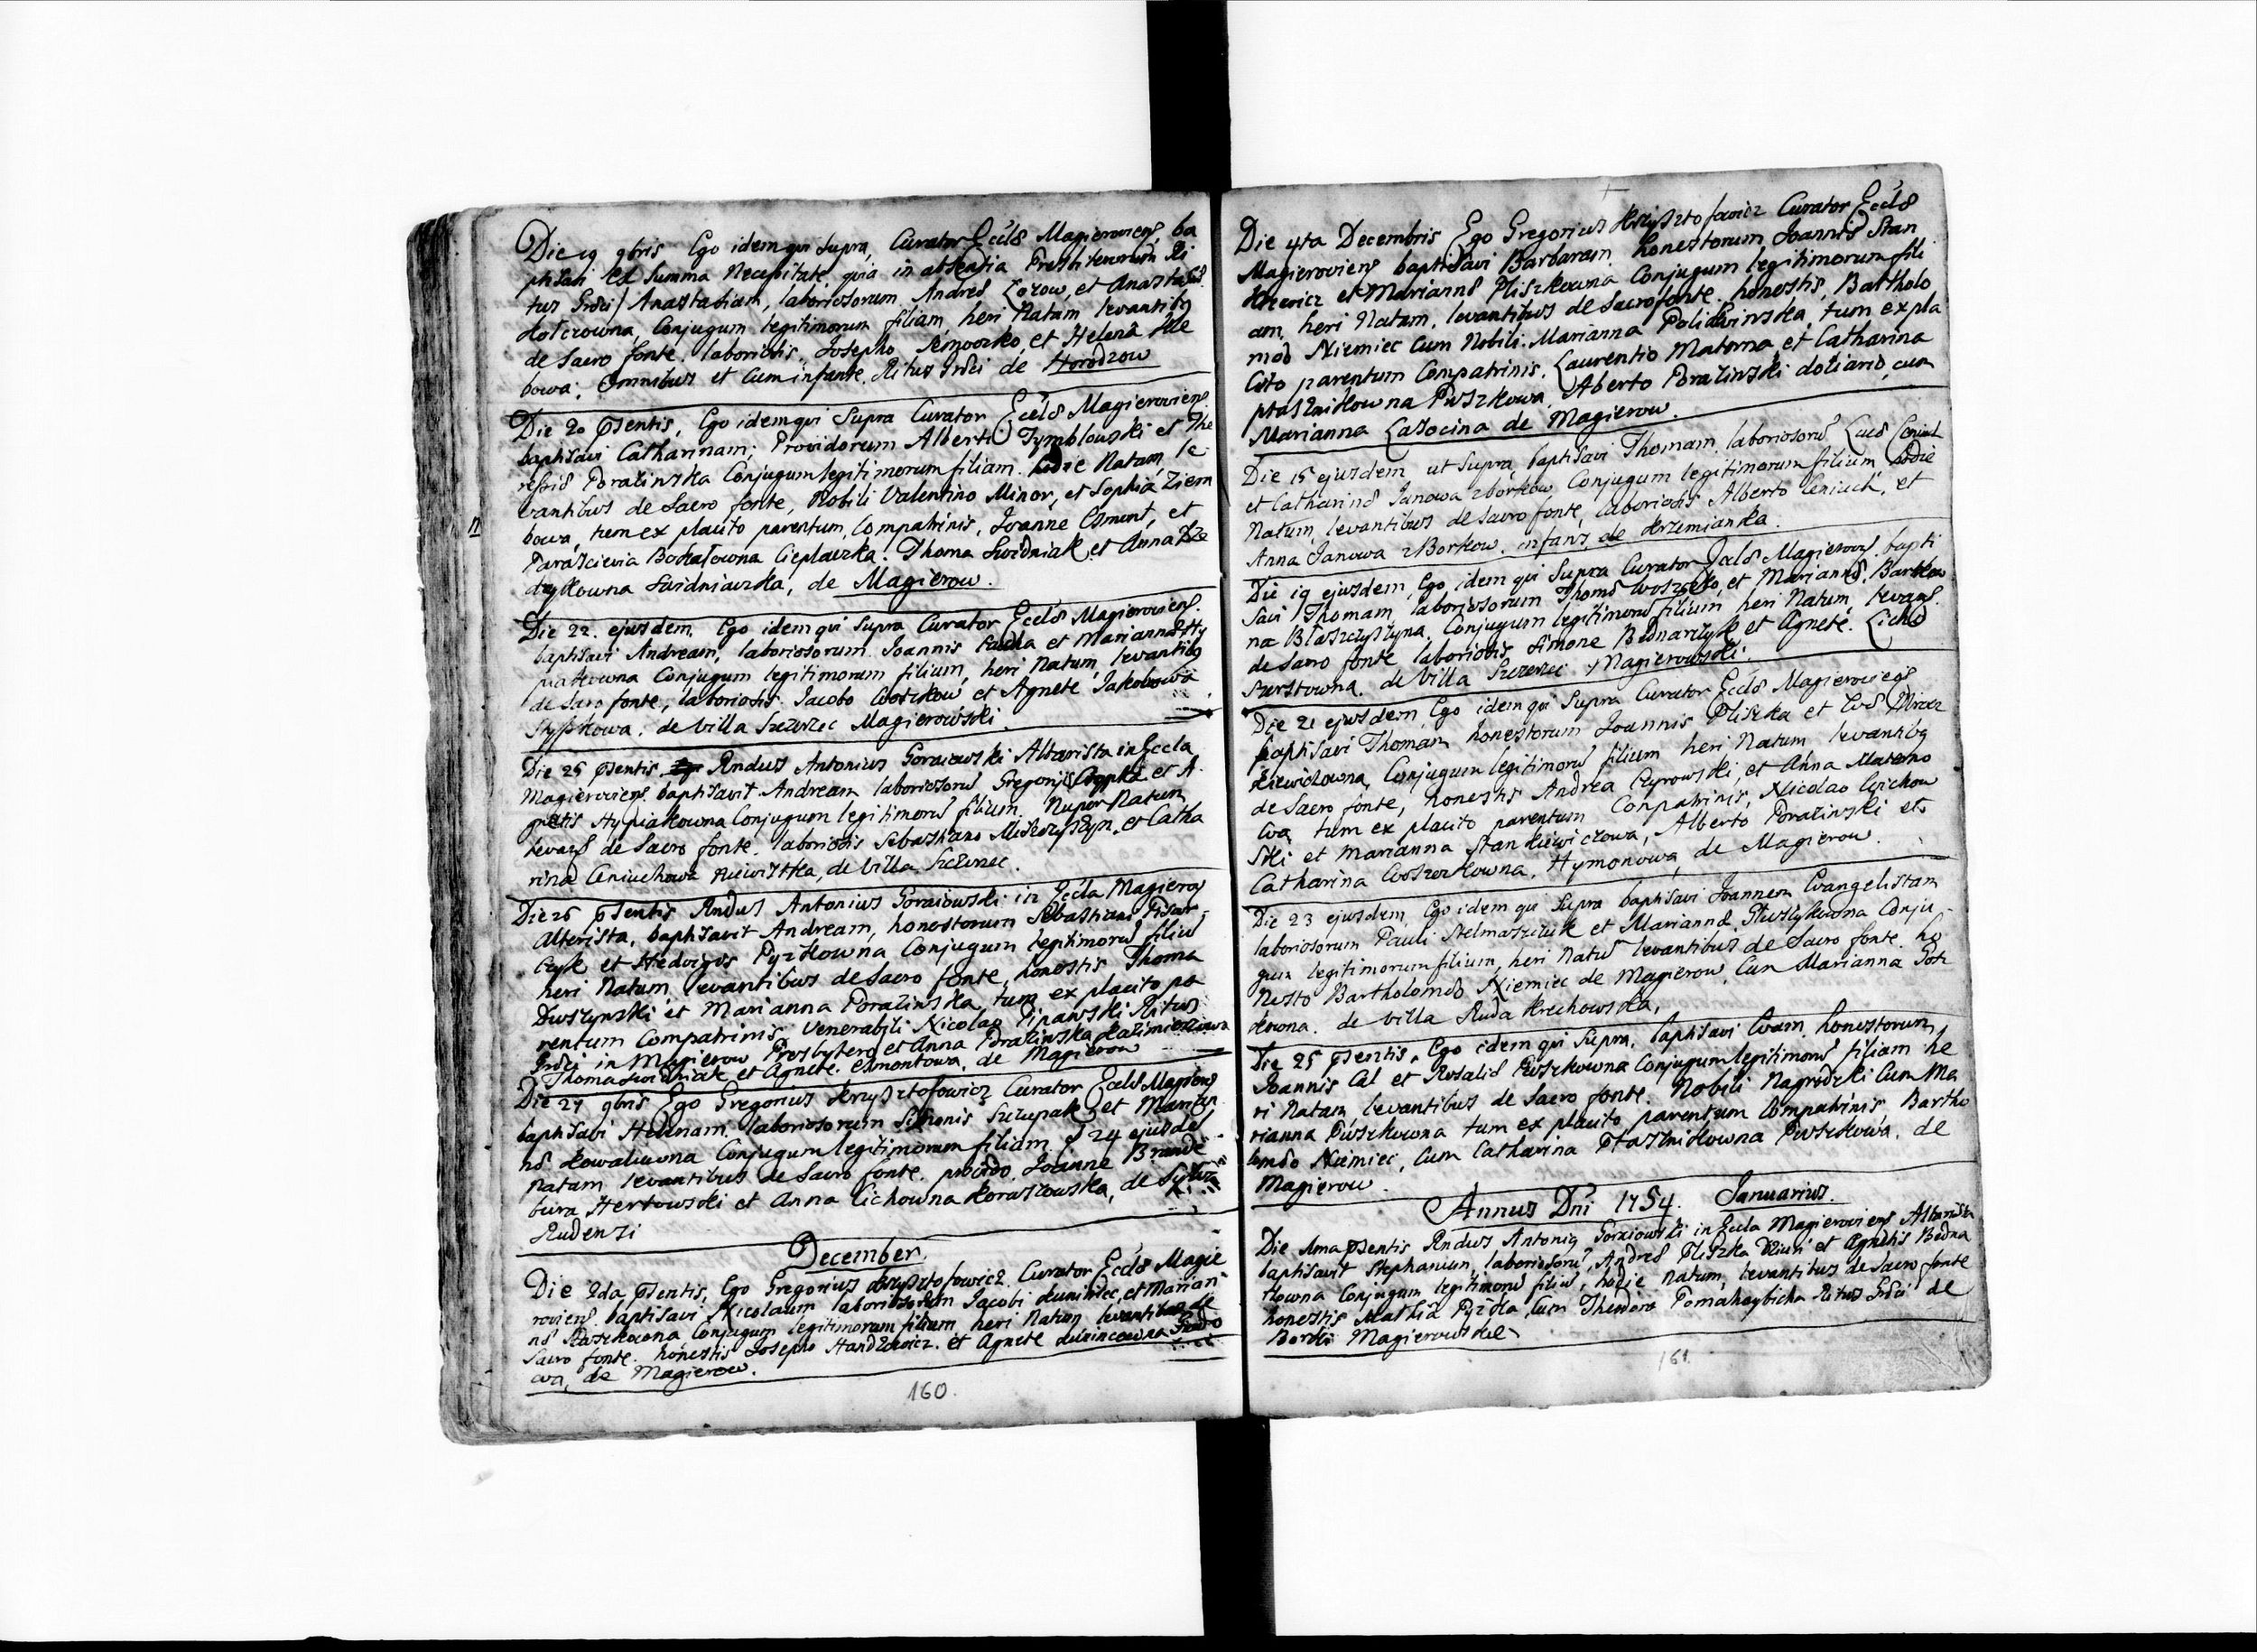 Die 19 9bris Ego idem qui supra, Curator Eccls Magieroviens ba
ptisavi ex summa Necessitate, quia in absentia Presbiterorum Ri
tus Grdci / Anastasiam, laboriosorum Andreo Lozow, et Anastasis
Holczowna, Conjugum legitimorum filiam, heri Natam levantibs
de Sacro fonte. laboriosis, Josepho et Helena
bowa; Omnibus et cum infante. Ritus Grdci de Horodzow
Die 20 psentis, Ego idem qui Supra Curator Eccls Magieroviens
baptisavi Catharinam; Providorum Alberti Tymblowski et The
resis Porażinska Conjugum legitimorum filiam. hodie Natam le
vantibus de Sacro fonte, Nobili Valentino Minor, et Sophia Ziem
bowa, tum ex placito parentum, Compatrinis, Joanne Esmont, et
11
Parascievia Bokałowna Cieplaczka. Thoma Swidniak et Anna Ke
dykowna Swidniaczka, de Magierow.
Die 22. ejusdem. Ego idem qui Supra Curator Eccls Magieroviens.
baptisavi Andream, laboriosorum Joannis et Marianna Hy
piakowna Conjugum legitimorum filium, heri Natum, levantibs
de Sacro fonte, laboriosis Jacobo Woszkow et Agnete Jakobowa
Hypkowa. de Villa Szczerzec Magierowski.
Die 25 psentis Rndus Antonius Goraiowski Altarista in Eccla
Magieroviens. baptisavit Andream laboriosoru Gregorij et A
gnetis Hypiakowna Conjugum legitimoru filium. Nuper Natum
levans de Sacro fonte. laboriosis Sebastiano et Catha
rina Ceniuchowa Niewistka, de Villa Szczerzec.
Die 26 psentis Rndus Antonius Goraiowski in Eccla Magierov
Alterista, baptisavit Andream, honestorum Sebastiani Pisar-
czyk et Hedvigis Pyzikowna Conjugum legitimoru filiu
heri Natum levantibus de Sacro fonte, honestis Thoma
Duszynski et Marianna Poraźinska, tum ex placito pa
rentum Compatrinis Venerabili Nicolao Lipawski Ritus
Grdci in Magierow Presbytero et Anna Poraźinska Kaźimierzowa
Thoma Swidniak et Agnete. Esmontowa, de Magierow
Die 27 9bris Ego Gregorius Krzysztofowicz Curator Eccls Magierovs
baptisavi Helenam. laboriosorum Simonis Szczupak et Marian
ns Kowalowna Conjugum legitimorum filiam d 24 ejusde
Natam levantibus de Sacro fonte. provido Joanne Brande
bura Hertowski et Anna Cichowna Koraszowska, de Sylva
Rudensi
December.
Die 2da psentis, Ego Gregorius Krzysztofowicz Curator Eccls Magie
roviens. baptisavi Nicolaum laboriosorum Jacobi Kuniniec, et Marian
ns Puszkowna Conjugum legitimorum filium heri Natum levantibus de
Sacro fonte. honestis Josepho Handzowicz. et Agnete
wa, de Magierow.
160.
Die 4ta Decembris Ego Gregorius Krzysztofowicz Curator Eccls
Magieroviens baptisavi Barbaram honestorum Joannis Stan
kiewicz et Marianns Pliszkowna Conjugum legitimorum fili
am, heri Natam, levantibus de Sacro fonte. honestis, Bartholo
mdo Niemiec Cum Nobili. Marianna Polidwinska, tum ex pla
cito parentum Compatrinis. Laurentio Materna et Catharina
Ptasznikowna Puszkowa, Alberto Poraźinski doliario, cum
Marianna Lasocina de Magierow.
Die 15 ejusdem ut Supra, baptisavi Thomam. laboriosoru Lucs Ceniuch
et Catharins Janowa zborkow Conjugum legitimorum filium, hodie
Natum, levantibus de Sacro fonte, laboriosis Alberto Ceniuch, et
Anna Janowa zBorkow. infans, de Krzemianka.
Die 19 ejusdem, Ego idem qui Supra Curator Eccls Magierovs. bapti
savi Thomam, laboriosorum Thoms Woszczko, et Marianns, Bartkow
na Błaszczyszyna. Conjugum legitimoru filium heri Natum, levans.
de Sacro fonte laboriosis, Simone Bednarczyk et Agnete. Cicho
Szerstowna. de Villa Szczerzec Magierowski.
Die 21 ejusdem, Ego idem qui Supra Curator Eccls Magieroviens
baptisavi Thomam honestorum Joannis Pliszka et Evs Mirzer
kiewiczowna, Conjugum legitimoru filium heri Natum levantibs
de Sacro fonte, honestis Andrea Czyrowski, et Anna Materno
wa tum ex placito parentum Conpatrinis, Nicolao Cichow
ski et Marianna Stankiewiczowa, Alberto Poraźinski et
Catharina Woszczkowna, Hymonowa, de Magierow.
Die 23 ejusdem, Ego idem qui Supra baptisavi Joannem Evangelistam
laboriosorum Pauli Stelmaszczuk et Marianns Conju-
gum legitimorum filium, heri Natu levantibus de Sacro fonte. ho
nesto Bartholomdo Niemiec de Magierow, Cum Marianna
kowna. de Villa Ruda Krechowska,
Die 25 psentis. Ego idem qui Supra, baptisavi Evam, honestorum
Joannis Cal et Rosalis Puszkowna Conjugum legitimoru filiam he
ri Natam, levantibus de Sacro fonte. Nobili Nagrodzki Cum Ma
rianna Puszkowna tum ex placito parentum Compatrinis, Bartho
lomdo Niemiec, Cum Catharina Ptasznikowna Puszkowa. de
Magierow
Annus Dni 1754. Januarius.
Die Ama psentis Rndus Antonis Goraiowski in Eccla Magieroviens Altarista
baptisavit Stephanum, laboriosoru, Andres Pliszka et Agnetis Bedna
rkowna Conjugum legitimoru filiu, hodie Natum, levantibus de Sacro fonte
honestis Mathia Pyzika, Cum Theodora Pomahaybicha Ritus Grdci de
Borki Magierowskie
161.